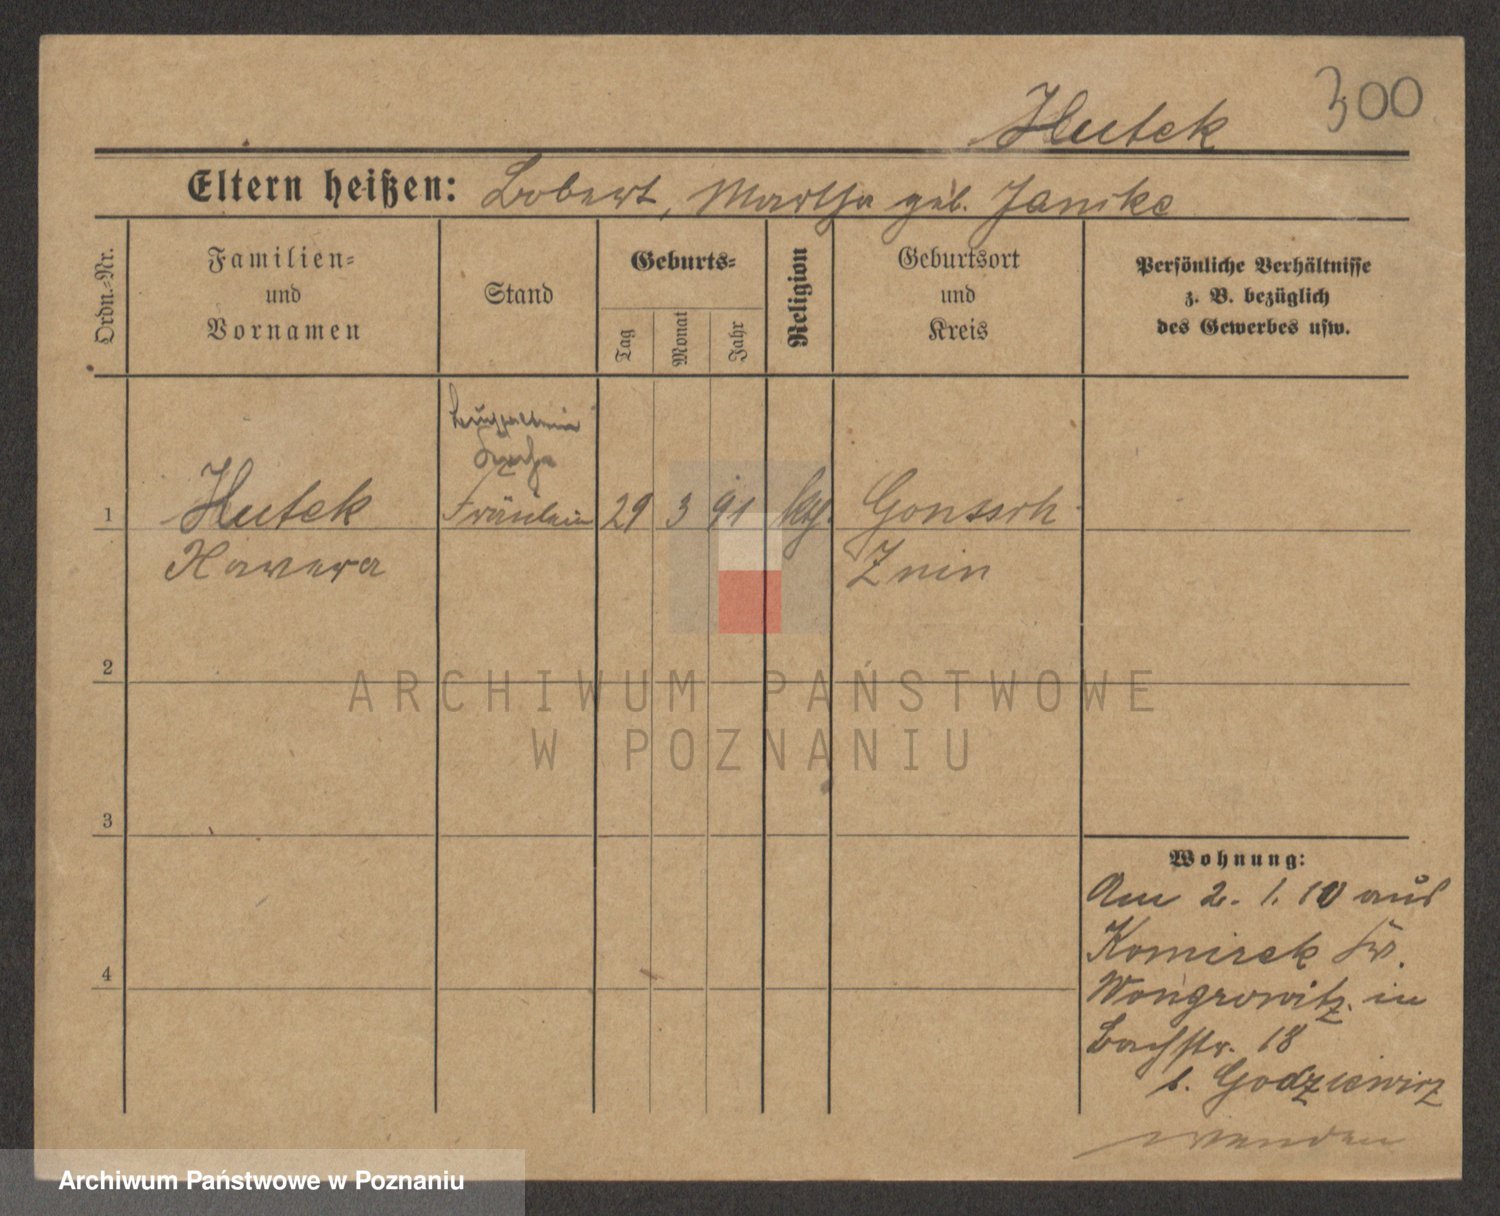 300
Hutek
Eltern heißen: Robert, Martha geb. Janike
Ordn.-Nr.
Familien-
und
Vornamen
Stand
Geburts-
Tag
Monat
Jahr
Religion
Geburtsort
und
Kreis
Persönliche Verhältnisse
z. B. bezüglich
des Gewerbes usw.
1
Hutek
Fräulein
29 3 91
Gonssch
Xawera
Znin
2
ARCHIWUM PAŃSTWOWE
W POZNANIU
3
Wohnung:
Am 2. 1. 10 aus
Komirek Kr.
Wongrowitz in
Bachstr. 18
b. Godziewirz
wenden
4
Archiwum Państwowe w Poznaniu